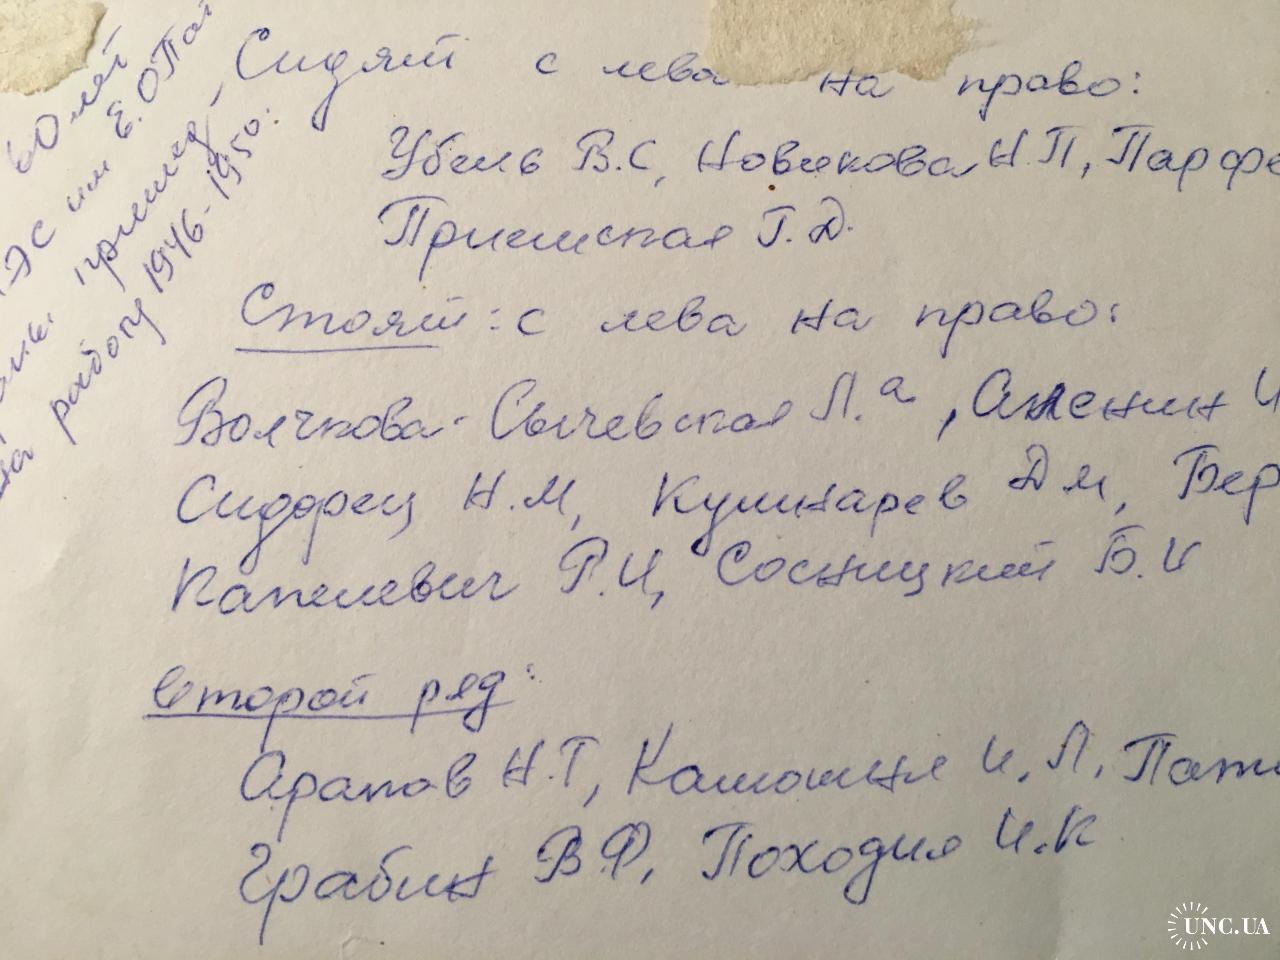 60 лет
ЭС им Е.О Па
пришед
на работу 1946-1950:
Сидят с лева на право:
Убель В.С, Новикова Н.П, Парфе
Приемская Г.Д.
Стоят: с лева на право:
Волчкова-Сычевская Л.а, Аленин И
Сидорец Н.М, Кушнарев Дм, Бер
Капелевич Р.И, Сосницкий Б.И
второй ряд:
Арапов Н.Т, И.Л, Пат
Грабин В.Ф, Походня И.К
UNC.UA